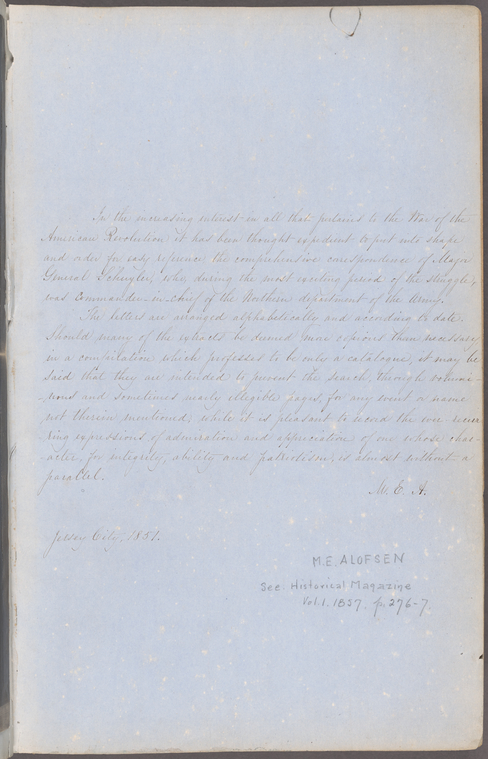 In the increasing interest in all that pertains to the War of the
American Revolution it has been thought expedient to put into shape
and order for easy reference the comprehensive correspondence of Major
General Schuyler, who, during the most exciting period of the struggle,
was Commander-in-Chief of the Northern department of the Army.
The letters are arranged alphabetically and according to date.
Should many of the extracts be deemed more copious than necessary
in a compilation which professes to be only a catalogue, it may be
said that they are intended to prevent the search, through volumi-
-nous and sometimes nearly illegible pages, for any event or name
not therein mentioned; while it is pleasant to record the ever recur-
-ring expressions of admiration and appreciation of one whose char-
-acter, for integrity, ability and patriotism, is almost without a
parallel.
M. E. A.
Jersey City, 1857.
M.E. ALOFSEN
See Historical Magazine
Vol. 1. 1857. p. 276-7.